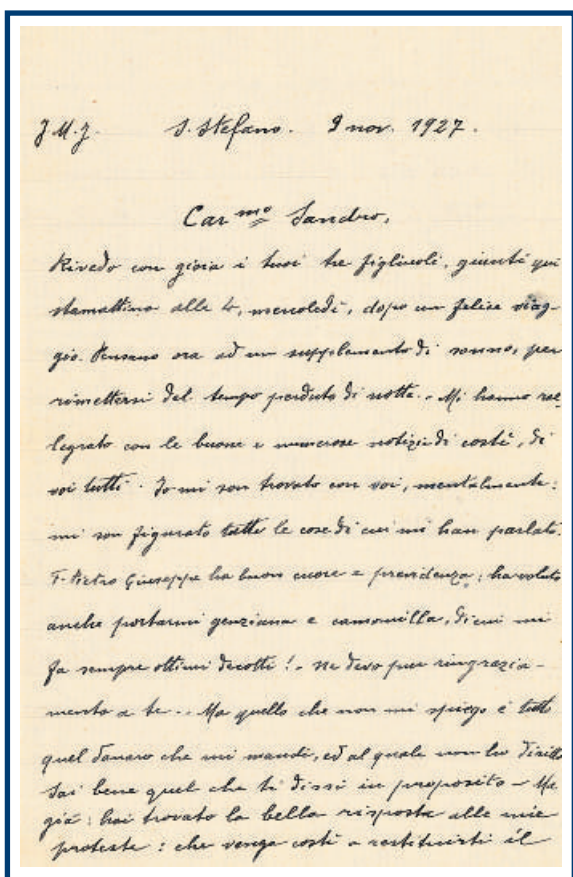 J.M.J. S. Stefano. 9 nov. 1927.
Car.mo Sandro,
Rivedo con gioia i tuoi tre figliuoli, giunti qui
stamattina alle 4, mercoledì, dopo un felice viag-
gio. Pensano ora ad un supplemento di sonno, per
rimettersi del tempo perduto di notte. - Mi hanno ral-
legrato con le buone e numerose notizie di costì, di
voi tutti. Io mi son trovato con voi, mentalmente:
mi son figurato tutte le cose di cui mi han parlato.
F. Pietro Giuseppe ha buon cuore e previdenza: ha voluto
anche portarmi genziana e camomilla, di cui mi
fa sempre ottimi decotti! - Ne devo pur ringrazia-
mento a te... Ma quello che non mi spiego è tutto
quel danaro che mi mandi, ed al quale non ho diritto
Sai bene quel che ti dissi in proposito - Ma
già: hai trovato la bella risposta alle mie
proteste: che venga costì a restituirti il